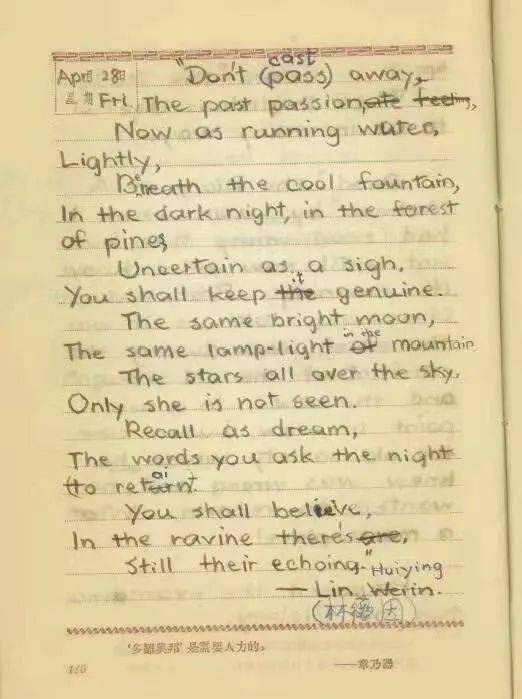 cast
Apr月 28日 "Don't (pass) away,
星期 Fri. The past passion,ate feeling,
Now as running water,
Lightly,
Beneath the cool fountain,
In the dark night, in the forest
of pines,
Uncertain as a sigh.
it
You shall keep the genuine.
The same bright moon,
in the
The same lamp-light of mountain
The stars all over the sky.
Only she is not seen.
Recall as dream,
The words you ask the night
ai
(to return.
You shall believe,
In the ravine there's are,
Still their echoing."
Huiying
— Lin Weiin.
(林徽因)
是需要人力的。
140 ——章乃器